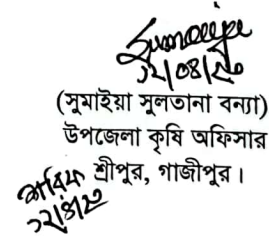 Sumaiya
১২/০৪/২৩
(সুমাইয়া সুলতানা বন্যা)
উপজেলা কৃষি অফিসার
শ্রীপুর, গাজীপুর।